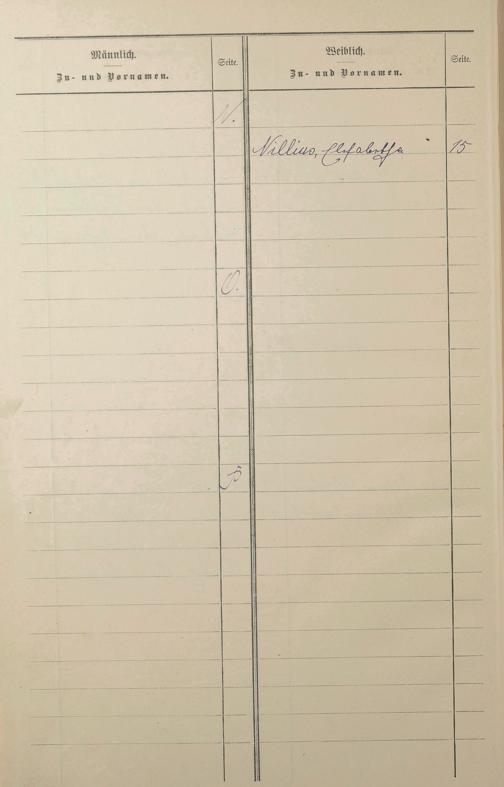 Männlich.
Zu- und Vornamen.
Seite.
Weiblich.
Zu- und Vornamen.
Seite.
N.
Nillius, Elisabetha
15
O.
P